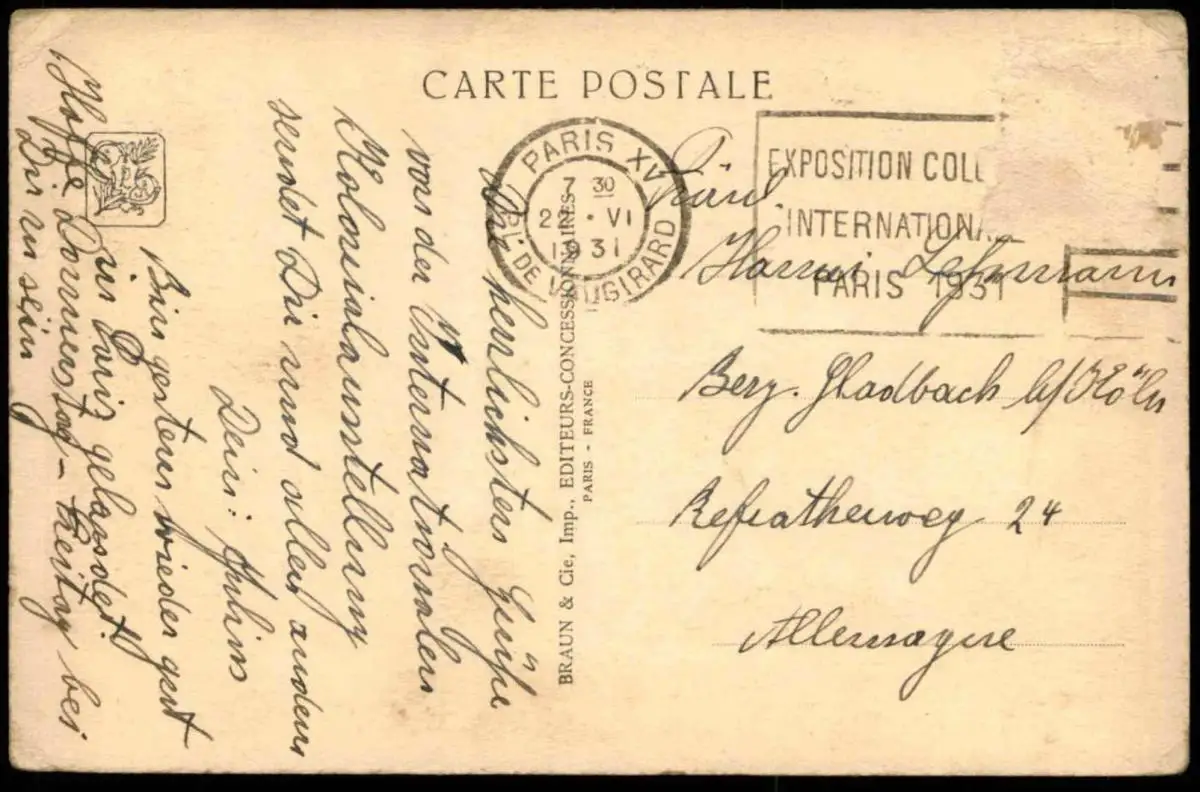 CARTE POSTALE
PARIS XV
7 30
2 · VI
1931
PL. DE VAUGIRARD
EXPOSITION COL
INTERNATIONA
PARIS 1931
Die herlichsten Grüße
von der Internationalen
Kolonialausstellung
sendet Dir und allen andern
Dein: Julius
Bin gestern wieder gut
in Paris gelandet.
Hoffe Donnerstag - Freitag bei
Dir zu sein
BRAUN & Cie, Imp., EDITEURS-CONCESSIONNAIRES
PARIS - FRANCE
Fräul.
Hanni Lehmann
Berg. Gladbach b/Köln
Refratherweg 24
Allemagne